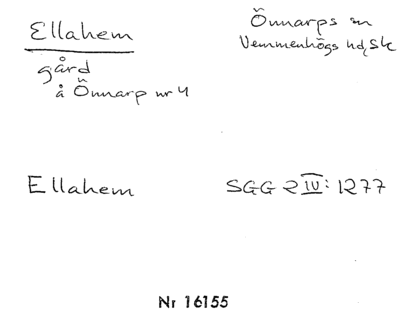 Ellahem
gård
å Önnarp nr 4
Önnarps sn
Vemmenhögs hd, Sk
Ellahem
SGG 2 IV: 1277
Nr 16155